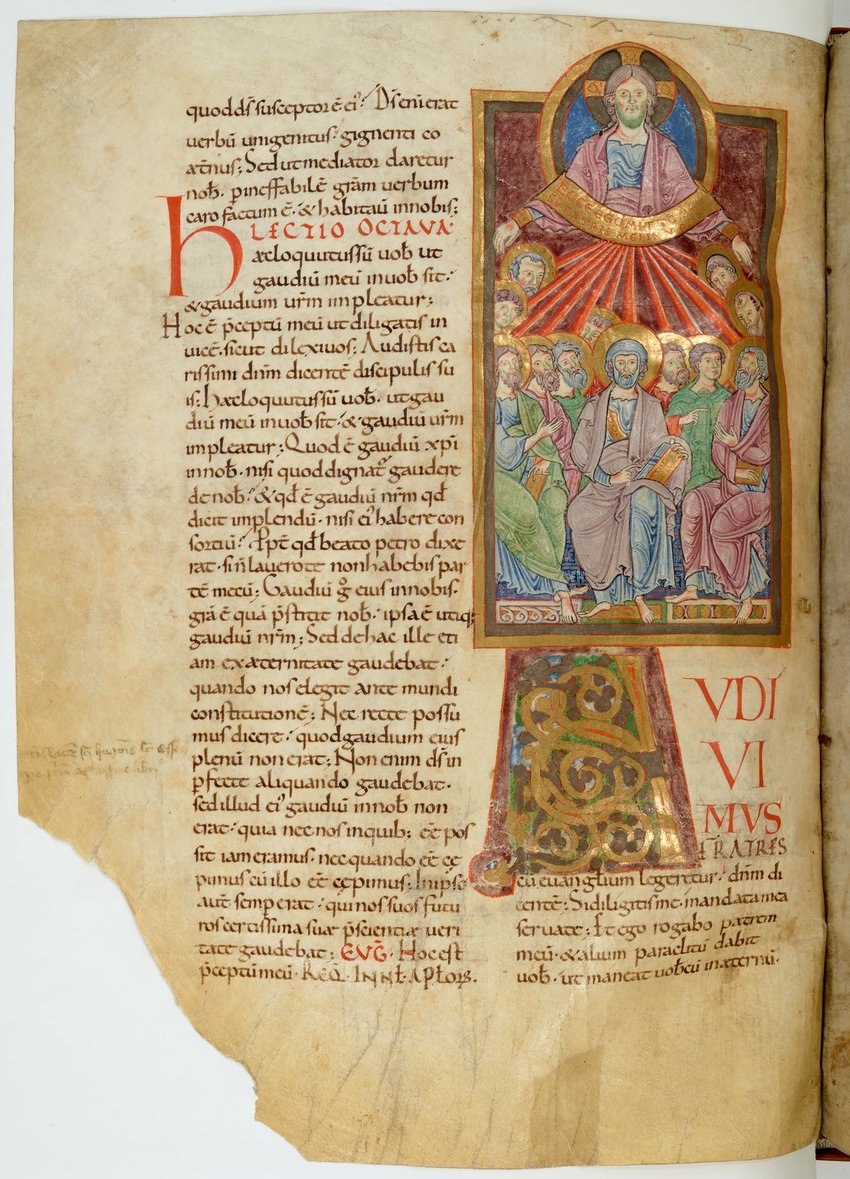 quod ds susceptor ē ei'. Ds eni erat
verbū unigenitus. gignenti co
æt̄nus; Sed ut mediator daretur
nob̄. p ineffabilē gr̄am verbum
caro factum ē. & habitaū in nobis;
LECTIO OCTAVA.
hæc loquutus sū vob̄ ut
gaudiū meū in vob̄ sit.
& gaudium vr̄m impleatur;
Hoc ē p̄ceptū meū ut diligatis in
vicē. sicut dilexi vos; Audistis ca
rissimi dn̄m dicentē discipulis su
is; hæc loquutus sū vob̄. ut gau
diū meū in vob̄ sit. & gaudiū vr̄m
impleatur; Quod ē gaudiū xp̄i
in nob̄. nisi quod dignat' gaudere
de nob̄. & qd̄ ē gaudiū nr̄m qd̄
dicit implendū. nisi ei' habere con
sortiū. Ppt̄ qd̄ beato petro dixe
rat. si n̄ lavero te non habebis par
tē mecū; Gaudiū g̊ eius in nobis.
gr̄a ē quā p̄stitit nob̄. ipsa ē utiq;
gaudiū nr̄m; Sed de hac ille eti
am ex æternitate gaudebat.
quando nos elegit ante mundi
constitutionē; Nec recte possu
mus dicere. quod gaudium eius
plenū non erat; Non enim ds̄ in
pfecte aliquando gaudebat.
sed illud ei' gaudiū in nob̄ non
erat. quia nec nos in quib; eē pos
sit iam eramus. nec quando eē cę
pimus cū illo eē cępimus; In ipso
aut̄ semp erat. qui nos suos futu
ros certissima suæ p̄scientiæ veri
tate gaudebat; EVG̅. Hoc est
p̄ceptū meū. REQ̅. IN NT̅. APLORS̅.
AVDI
VI
MVS
FRATRES
cū evangl̄ium legeretur. dn̄m di
centē; Si diligitis me. mandata mea
servate; Et ego rogabo patrem
meū. & alium paraclitū dabit
vob̄. ut maneat vob̄cū in æternū.